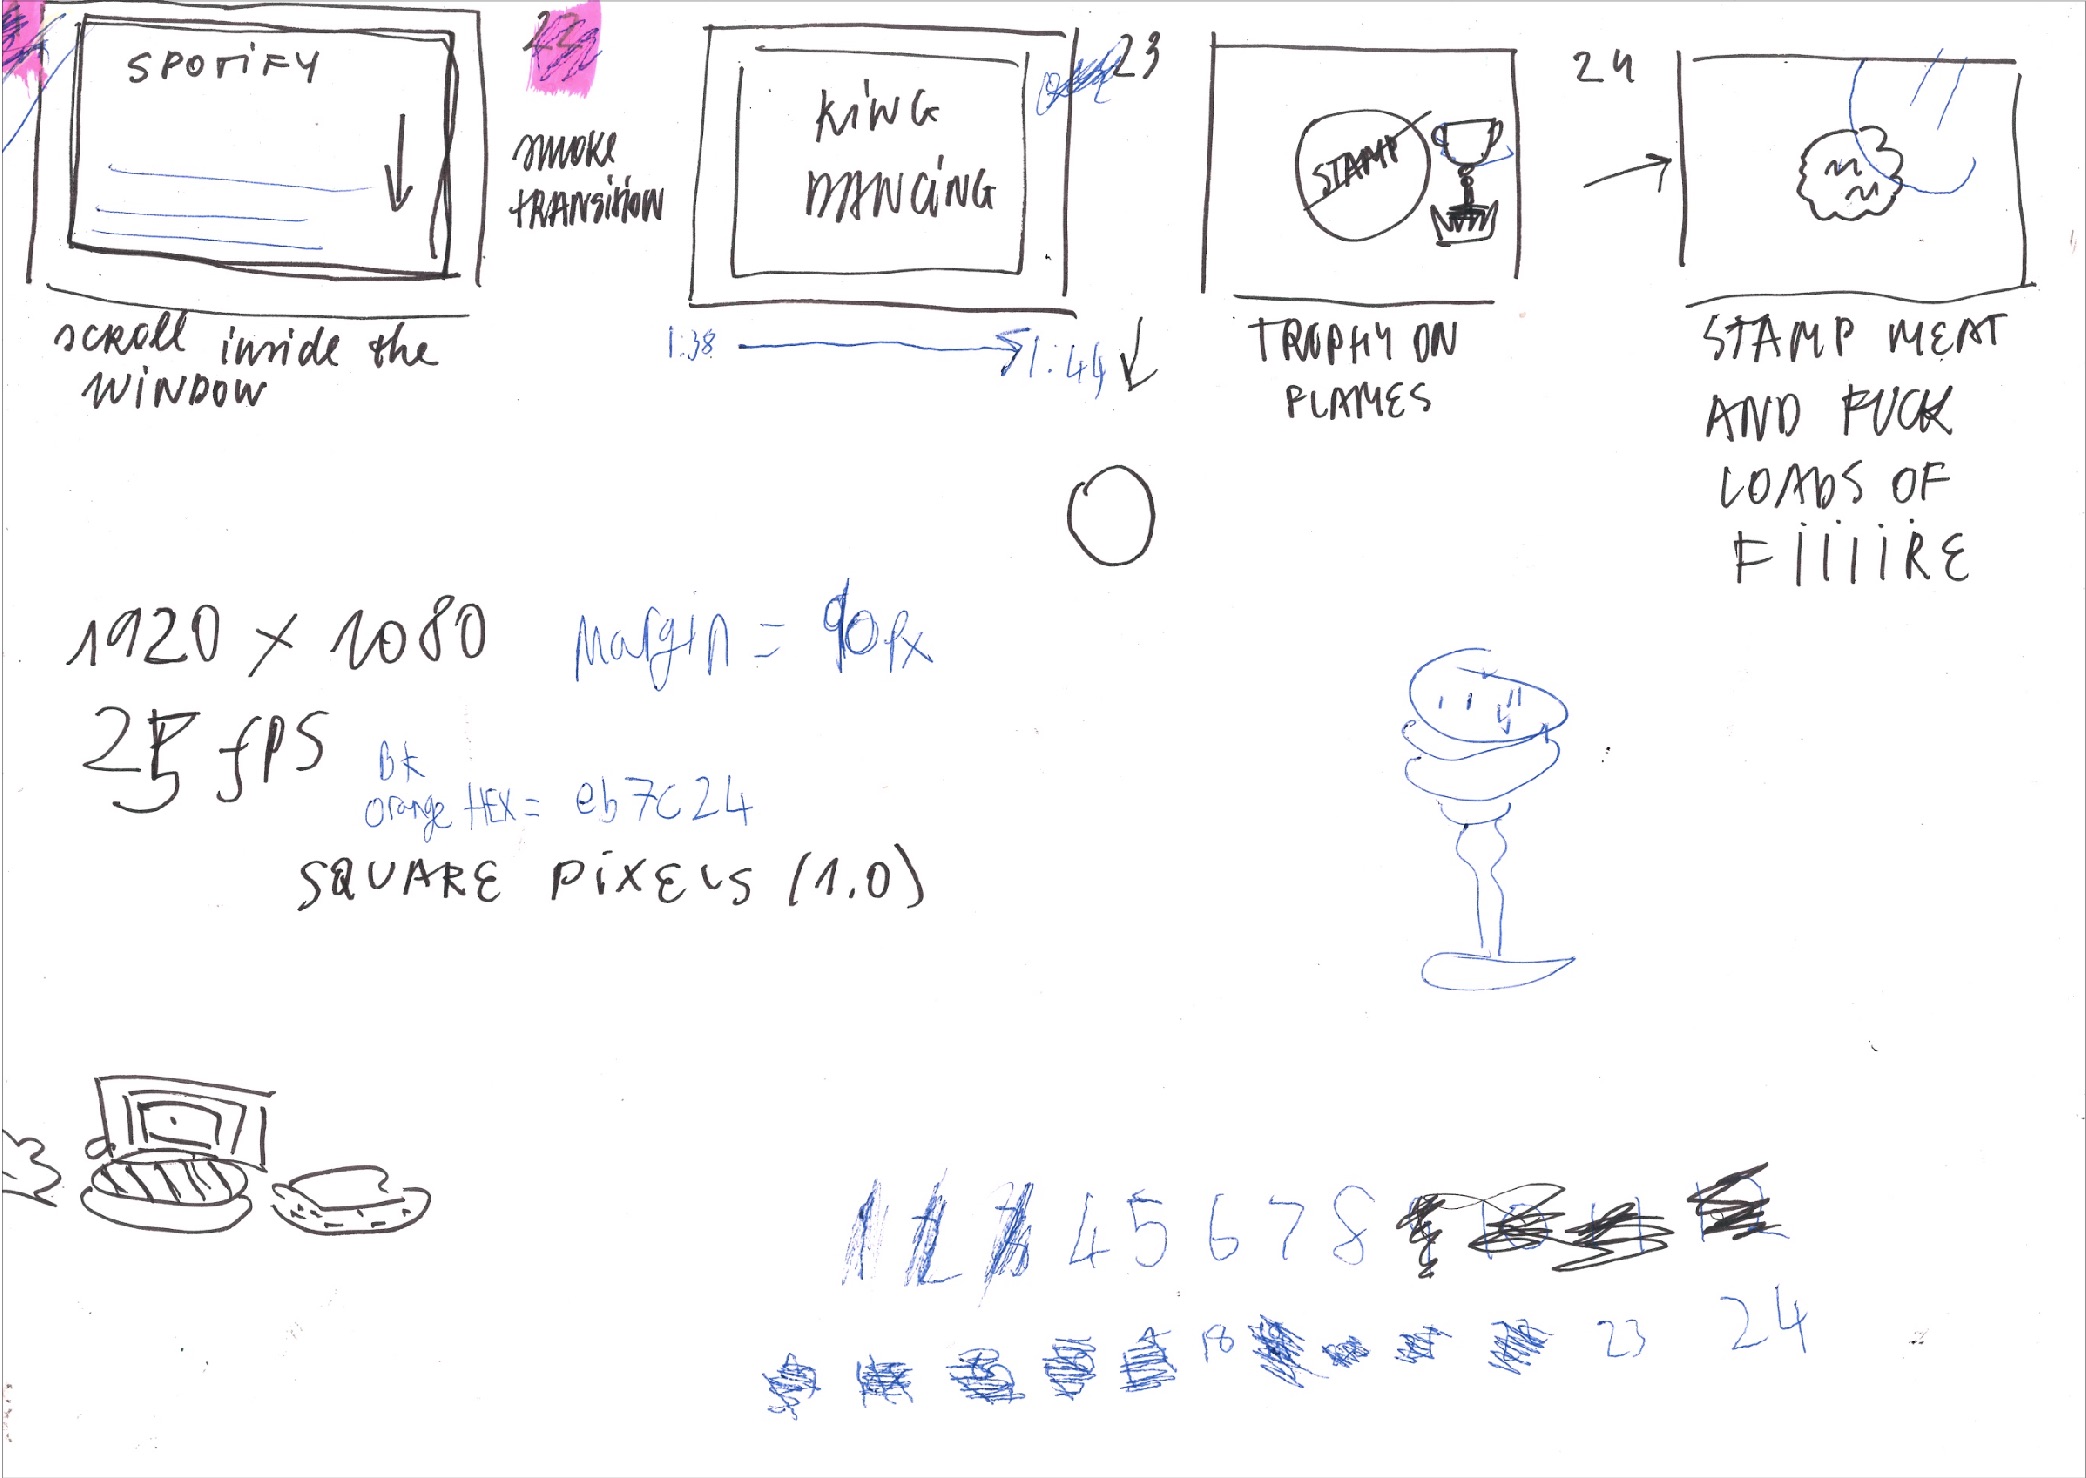 SPOTIFY
scroll inside the
WINDOW
22
smoke
transition
KING
DANCING
1:38
1:44
23
STAMP
TROPHY ON
FLAMES
24
STAMP MEAT
AND FUCK
LOADS OF
FiiiiiRE
1920 x 1080
Margin = 90px
25 fps
BK
orange HEX = eb7c24
SQUARE PIXELS (1.0)
1 2 3 4 5 6 7 8 9 10 11 12
18 23 24